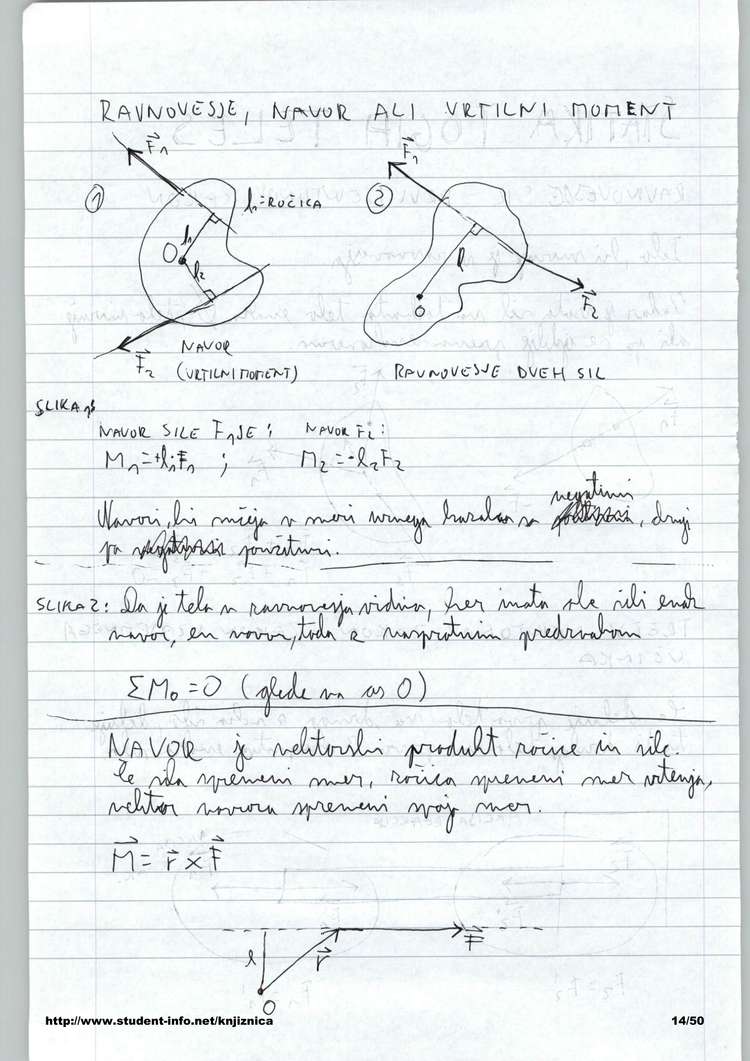 RAVNOVESJE, NAVOR ALI VRTILNI MOMENT
F₁
1
l₁=ROČICA
O
l₁
l₂
F₂
NAVOR
(VRTILNI MOMENT)
F₁
2
l
O
F₂
RAVNOVESJE DVEH SIL
SLIKA 1:
NAVOR SILE F₁ JE: NAVOR F₂:
M₁=+l₁F₁ ; M₂=-l₂F₂
negativni
Navori, ki v meri urnega kazalca so , drugi
pa pozitivni.
SLIKA 2: Da je telo v ravnovesju vidimo, ker imata obe sili enak
navor, en navor, toda z nasprotnim predznakom
ΣM₀=0 (glede na os O)
NAVOR je vektorski produkt ročice in sile.
Če sila spremeni smer, ročica spremeni smer vrtenja,
vektor navora spremeni svojo smer.
M = r × F
l
r
F
O
http://www.student-info.net/knjiznica 14/50